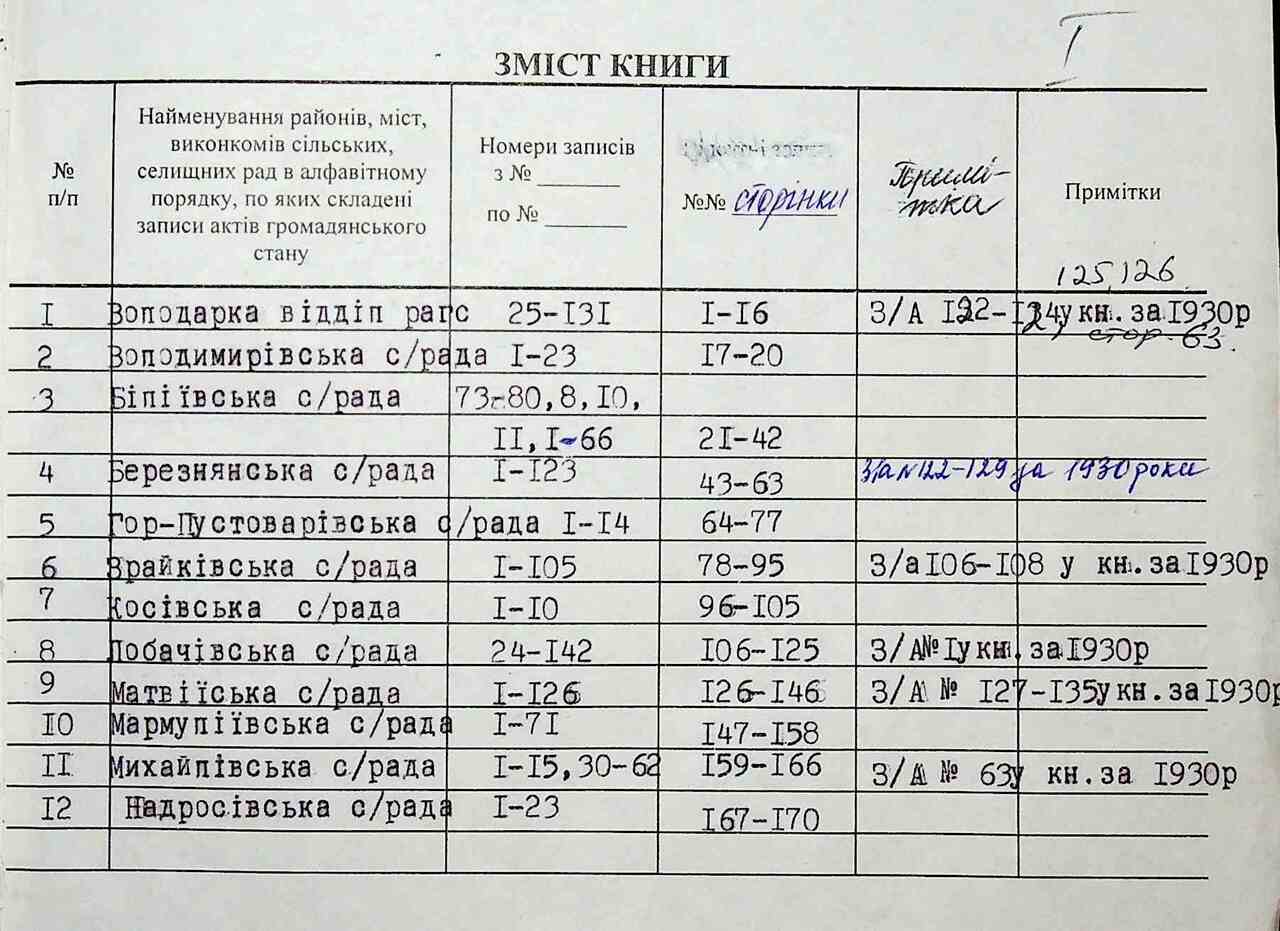 I
ЗМІСТ КНИГИ
№ п/п
Найменування районів, міст,
виконкомів сільських,
селищних рад в алфавітному
порядку, по яких складені
записи актів громадянського
стану
Номери записів
з № ______
по № ______
№№ сторінки
Примі-
тка
Примітки
125,126
I Володарка відділ рагс 25-I3I I-I6 З/А I22-I24 у кн. за I930р
стор. 63.
2 Володимирівська с/рада I-23 I7-20
3 Біліївська с/рада 73-80,8,I0,
II,I-66 2I-42
4 Березнянська с/рада I-I23 43-63 З/а №122-129 за 1930 роки
5 Гор-Пустоварівська с/рада I-I4 64-77
6 Зрайківська с/рада I-I05 78-95 З/а I06-I08 у кн. за I930р
7 Косівська с/рада I-I0 96-I05
8 Лобачівська с/рада 24-I42 I06-I25 З/А№ I у кн. за I930р
9 Матвіїська с/рада I-I26 I26-I46 З/А № I27-I35 у кн. за I930р
I0 Мармуліївська с/рада I-7I I47-I58
II Михайлівська с/рада I-I5,30-62 I59-I66 З/А № 63у кн. за I930р
I2 Надросівська с/рада I-23 I67-I70